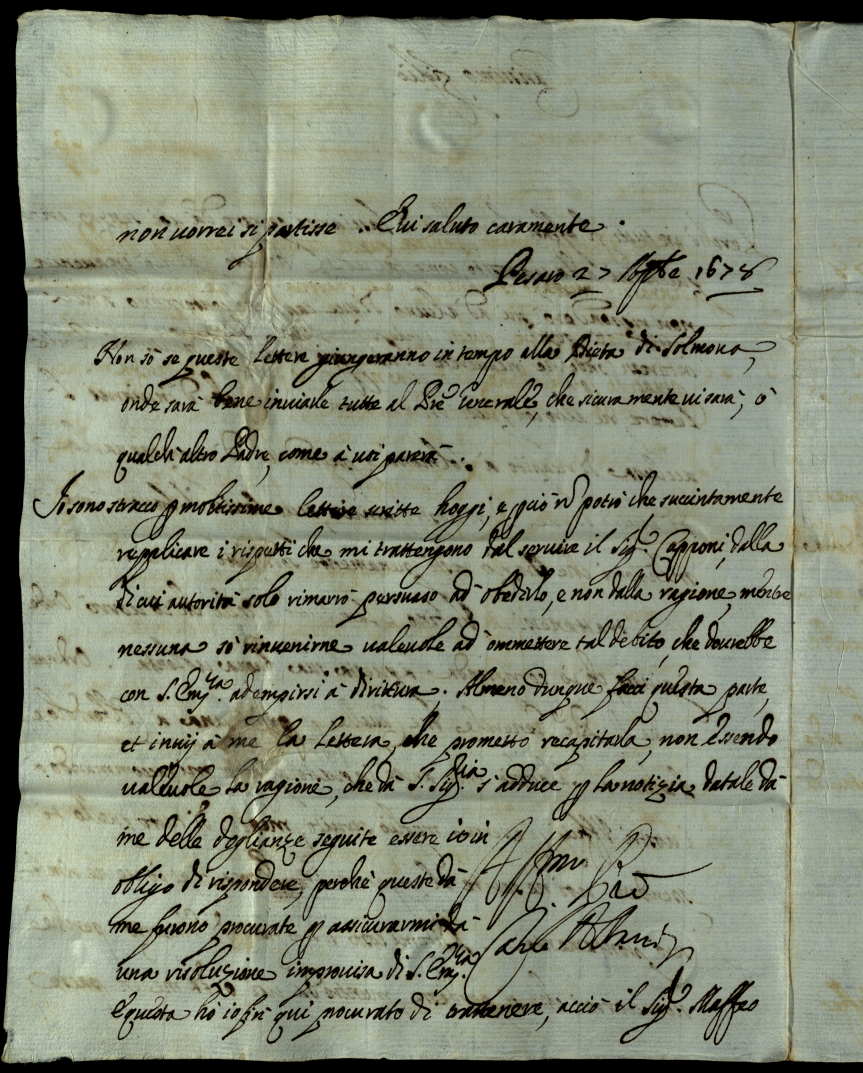 non uorrei si partisse. E ui saluto caramente.
Pesaro 27 1678
Non sò se queste lettere giungeranno in tempo alla Dieta di Solmona,
onde sarà bene inuiarle tutte al Prē Generale, che sicuramente ui sarà, ò
qualch'altro Padre, come à uoi parerà.
Io sono stracco p moltissime lettere scritte hoggi, e pciò nō potrò che succintamente
replicare i rispetti che mi trattengono dal seruire il Sigr. Capponi, dalla
di cui autorità solo rimarrò persuaso ad obedirlo, e non dalla ragione, mentre
nessuna sò rinuenirne ualeuole ad ommettere tal debito, che dourebbe
con S. Emza. adempirsi à diritura. Almeno dunque facci questa parte,
et inuij à me la lettera, che prometto recapitarla, non essendo
ualeuole la ragione, che dà S. Sigria s'adduce p la notizia datale dà
me delle doglianze seguite essere io in
obligo di rispondere, perche queste dà
me furono procurate p assicurarmi dà
una risoluzione improuisa di S. Emza.
e questa hò io fin qui procurato di trattenere, acciò il Sigr. Maffeo
Affmo Prē
Carlo